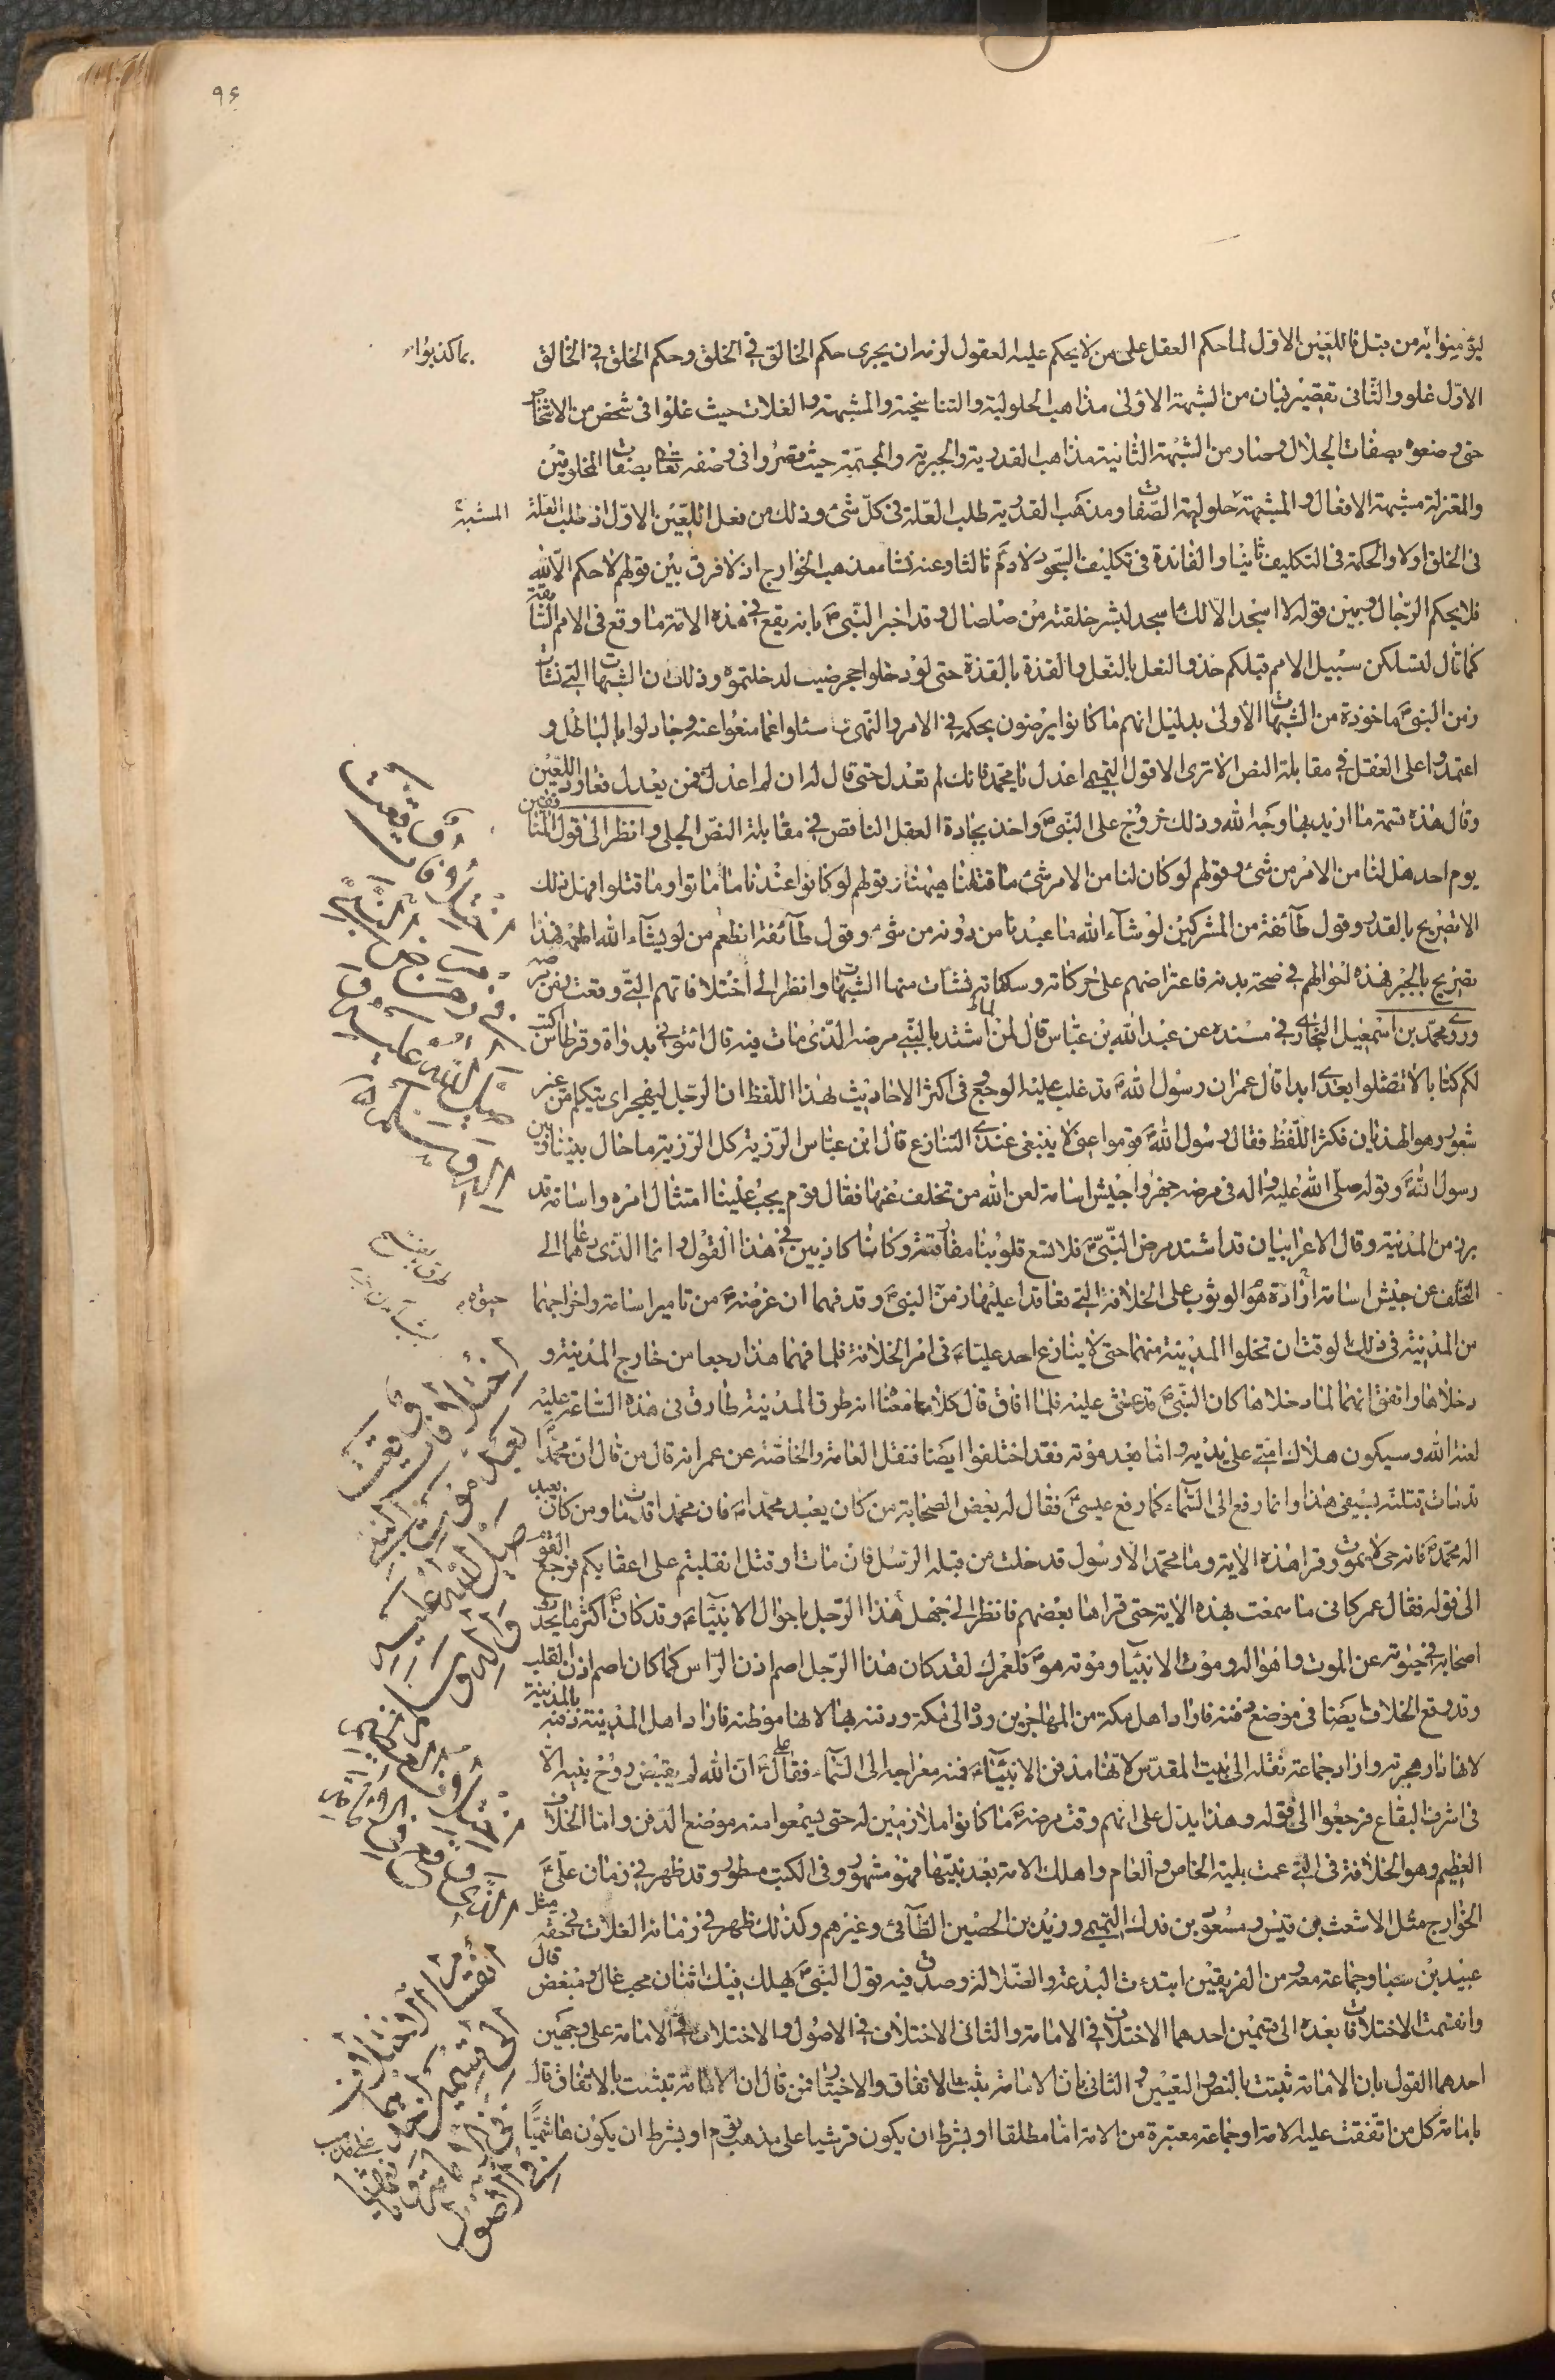 ٩٤
ليؤمنوا به من قبل فاللعين الاول لما حكم العقل على من لا يحكم عليه العقول لزمه ان يجرى حكم الخالق فى الخلق وحكم الخلق فى الخالق
بما كذبوا
الاول غلو والثانى تقصير فبان من الشبهة الاولى مذاهب الحلولية والتناسخية والمشبهة والغلات حيث غلوا فى شخص من الاشخاص
حتى وصفوه بصفات الجلال وصار من الشبهة الثانية مذاهب القدرية والجبرية والمجسمة حيث قصروا فى وصفه تعالى بصفات المخلوقين
والمعتزلة مشبهة الافعال والمشبهة حلولية الصفات ومذهب القدرية طلب العلة فى كل شئ وذلك من فعل اللعين الاول اذ طلب العلة
المشبهة
فى الخلق اولا والحكمة فى التكليف ثانيا والفائدة فى تكليف السجود لادم ثالثا وعنه نشا مذهب الخوارج اذ لا فرق بين قولهم لا حكم الا لله
فلا يحكم الرجال وبين قوله لا اسجد الا لك ءاسجد لبشر خلقته من صلصال وقد اخبر النبى ص بانه يقع فى هذه الامة ما وقع فى الامم السابقة
كما قال لتسلكن سبيل الامم قبلكم حذو النعل بالنعل والقذة بالقذة حتى لو دخلوا حجر ضب لدخلتموه وذلك ان الشبهات التى نشات
زمن النبى ص ماخوذة من الشبهات الاولى بدليل انهم ما كانوا يرضون بحكمه فى الامر والنهى سئلوا عما منعوا عنه وجادلوا بالباطل و
اعتمدوا على العقل فى مقابلة النص الا ترى الا قول التميمى اعدل يا محمد فانك لم تعدل حتى قال له ان لم اعدل فمن يعدل فعاود اللعين
وقال هذه قسمة ما اريد بها وجه الله وذلك خروج على النبى ص واخذ بجادة العقل الناقص فى مقابلة النص الجلى وانظر الى قول المنافقين
يوم احد هل لنا من الامر من شئ وقولهم لو كان لنا من الامر شئ ما قتلنا هيهنا وقولهم لو كانوا عندنا ما ماتوا وما قتلوا فهل ذلك
الا تصريح بالقدر وقول طائفة من المشركين لو شاء الله ما عبدنا من دونه من شئ وقول طائفة انطعم من لو يشاء الله اطعمه فهذا
تصريح بالجبر فهذه احوالهم فى صحة بدنه فاعتراضهم على حركاته وسكناته فنشات منها الشبهات وانظر الى اختلافاتهم التى وقعت فى مرضه
وروى محمد بن اسمعيل البخارى فى مسنده عن عبد الله بن عباس قال لما اشتد بالنبى مرضه الذى مات فيه قال ائتونى بدواة وقرطاس اكتب
لكم كتابا لا تضلوا بعدى ابدا قال عمر ان رسول الله ص قد غلب عليه الوجع فى اكثر الاحاديث بهذا اللفظ ان الرجل ليهجر اى يتكلم من غير
شعور وهو الهذيان فكثر اللفظ فقال رسول الله ص قوموا عنى لا ينبغى عندى التنازع قال ابن عباس الرزية كل الرزية ما حال بيننا وبين
رسول الله ص وقوله صلى الله عليه واله فى مرضه جهزوا جيش اسامة لعن الله من تخلف عنها فقال قوم يجب علينا امتثال امره واسامة قد
برز من المدينة وقال الاعرابيان قد اشتد مرض النبى ص فلا تسع قلوبنا مفارقته وكانا كاذبين فى هذا القول وانما الذى دعاهما الى
التخلف عن جيش اسامة ارادة هو الوثوب على الخلافة التى تعاقدا عليها زمن النبى ص وقد فهما ان غرضه ص من تامير اسامة واخراجهما
حيوته
من المدينة فى ذلك الوقت ان تخلوا المدينة منهما حتى لا ينازع احد عليا ع فى امر الخلافة فلما فهما هذا رجعا من خارج المدينة و
دخلاها واتفق انهما لما دخلاها كان النبى ص قد غشى عليه فلما افاق قال كلاما معناه انه طرق المدينة طارق فى هذه الساعة عليه
لعنة الله وسيكون هلاك امتى على يديه واما بعد موته فقد اختلفوا ايضا فنقل العامة والخاصة عن عمر انه قال من قال ان محمدا
قد مات قتلته بسيفى هذا وانما رفع الى السماء كما رفع عيسى ع فقال له بعض الصحابة من كان يعبد محمدا ص فان محمدا قد مات ومن كان يعبد
اله محمد ص فانه حى لا يموت وقرا هذه الاية وما محمد الا رسول قد خلت من قبله الرسل فان مات او قتل انقلبتم على اعقابكم فرجع القوم
الى قوله فقال عمر كانى ما سمعت بهذه الاية حتى قراها بعضهم فانظر الى جهل هذا الرجل باحوال الانبياء ع وقد كان ص اكثر ما يحدث
اصحابه فى حيوته عن الموت واهواله وموت الانبياء وموته هو ص فلعمرك لقد كان هذا الرجل اصم اذن الراس كما كان اصم اذن القلب
وقد وقع الخلاف ايضا فى موضع دفنه فاراد اهل مكة من المهاجرين رده الى مكة ودفنه بها لانها موطنه فاراد اهل المدينة دفنه بالمدينة
لانها دار هجرته واراد جماعة نقله الى بيت المقدس لانها مدفن الانبياء ع فمنه معراجه الى السماء فقال على ع ان الله لم يقبض روح نبيه الا
فى اشرف البقاع فرجعوا الى قوله وهذا يدل على انهم وقت مرضه ص ما كانوا ملازمين له حتى يسمعوا منه موضع الدفن واما الخلاف
العظيم وهو الخلافة فى التى عمت بلية الخاص والعام واهلك الامة بعد نبيها فهو مشهور وفى الكتب مسطور وقد ظهر فى زمان على ع
الخوارج مثل الاشعث بن قيس ومسعود بن فدك التميمى وزيد بن الحصين الطائى وغيرهم وكذلك ظهر فى زمانه الغلات فى حقه مثل
عبيد بن سبا وجماعة معه ومن الفريقين ابتدءت البدعة والضلالة وصدق فيه قول النبى ص يهلك فيك اثنان محب غال ومبغض قال
وانقسمت الاختلافات بعده الى قسمين احدهما الاختلاف فى الامامة والثانى الاختلاف فى الاصول والاختلاف فى الامامة على وجهين
احدهما القول بان الامامة تثبت بالنص والتعيين والثانى بان الامامة تثبت بالاتفاق والاختيار فمن قال ان الامامة تثبت بالاتفاق قال
بامامة كل من اتفقت عليه الامة او جماعة معتبرة من الامة اما مطلقا او بشرط ان يكون قرشيا على مذهب قوم او بشرط ان يكون هاشميا
اختلافات وقعت
فى مرض النبى
صلى الله عليه
واله وسلم
اختلاف وقعت
بعد موت النبى
صلى الله عليه
واله وسلم
انقسام الاختلاف
الى قسمين احدهما
فى الامامة وثانيها
فى الاصول